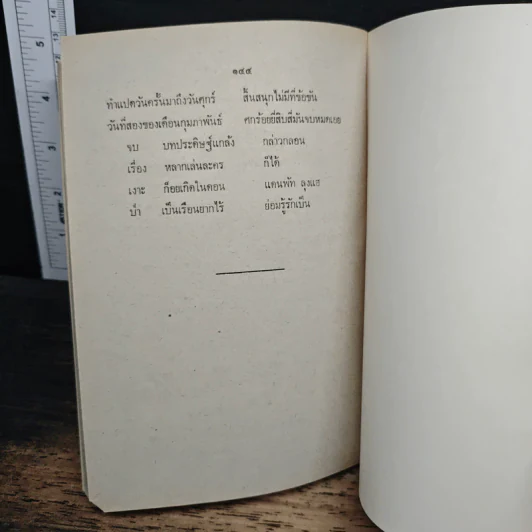 ๑๔๔
ทำแปดวันครั้นมาถึงวันศุกร์ สิ้นสนุกไม่มีที่ข้อขัน
วันที่สองของเดือนกุมภาพันธ์ ศกร้อยยี่สิบสี่มันจบหมดเอย
จบ บทประดิษฐ์แกล้ง กล่าวกลอน
เรื่อง หลากเล่นละคร ก็ได้
เงาะ ก็อยเกิดในดอน แดนพัท ลุงแฮ
ป่า เป็นเรือนยากไร้ ย่อมรู้รักเป็น
5
4
3
2
1
14